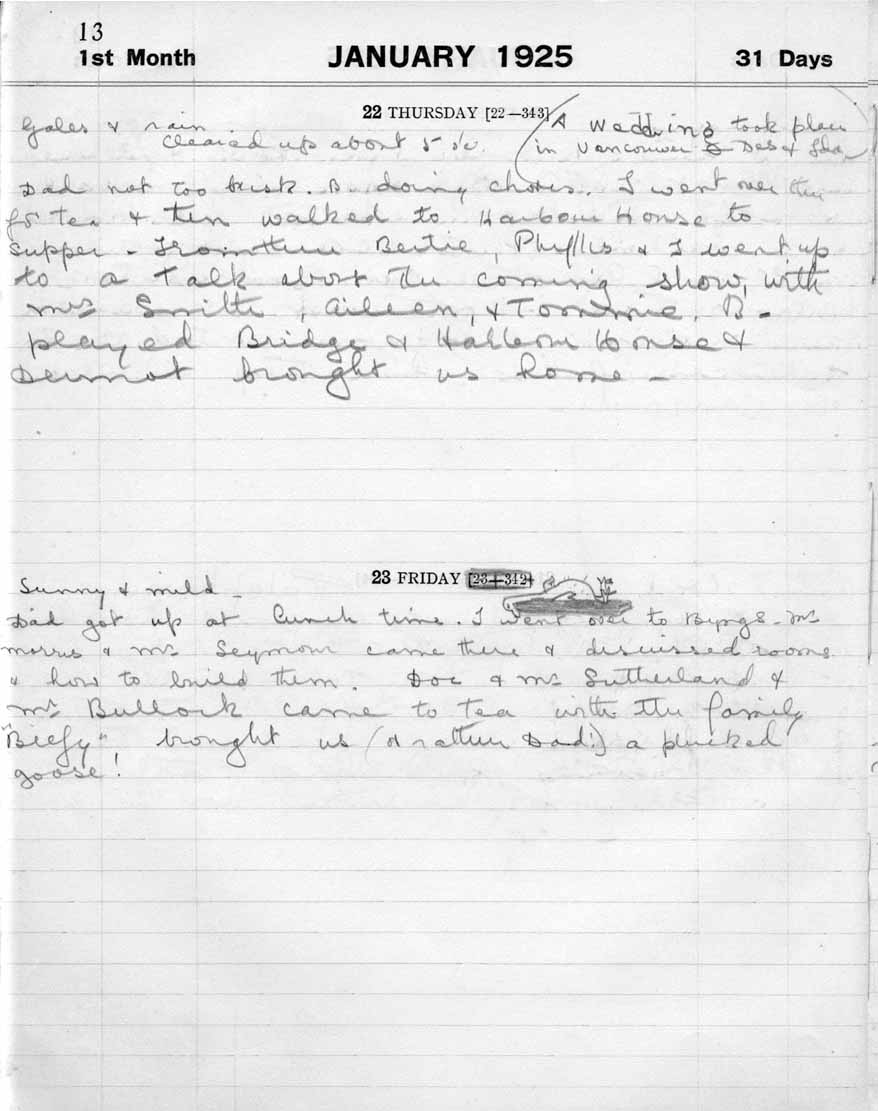 13
1st Month JANUARY 1925 31 Days
22 THURSDAY [22—343]
Gales & rain
Cleared up about 5 o/c.
A Wedding took place
in Vancouver Des & Ida
Dad not too brisk. B. doing chores. I went over there
for tea & then walked to Harbour House to
supper - From there Bertie, Phyllis & I went up
to a talk about the coming show, with
Mrs Smith, Aileen, & Tommie. B-
played Bridge @ Harbour House &
Dermot brought us home -
23 FRIDAY [23—342]
Sunny & mild -
Dad got up at lunch time. I went over to Byngs. Mr
Morris & Mr Seymour came there & discussed rooms
& how to build them. Doc & Mrs Sutherland &
Mr Bullock came to tea with the family
"Beefy" brought us (or rather Dad!) a plucked
goose!